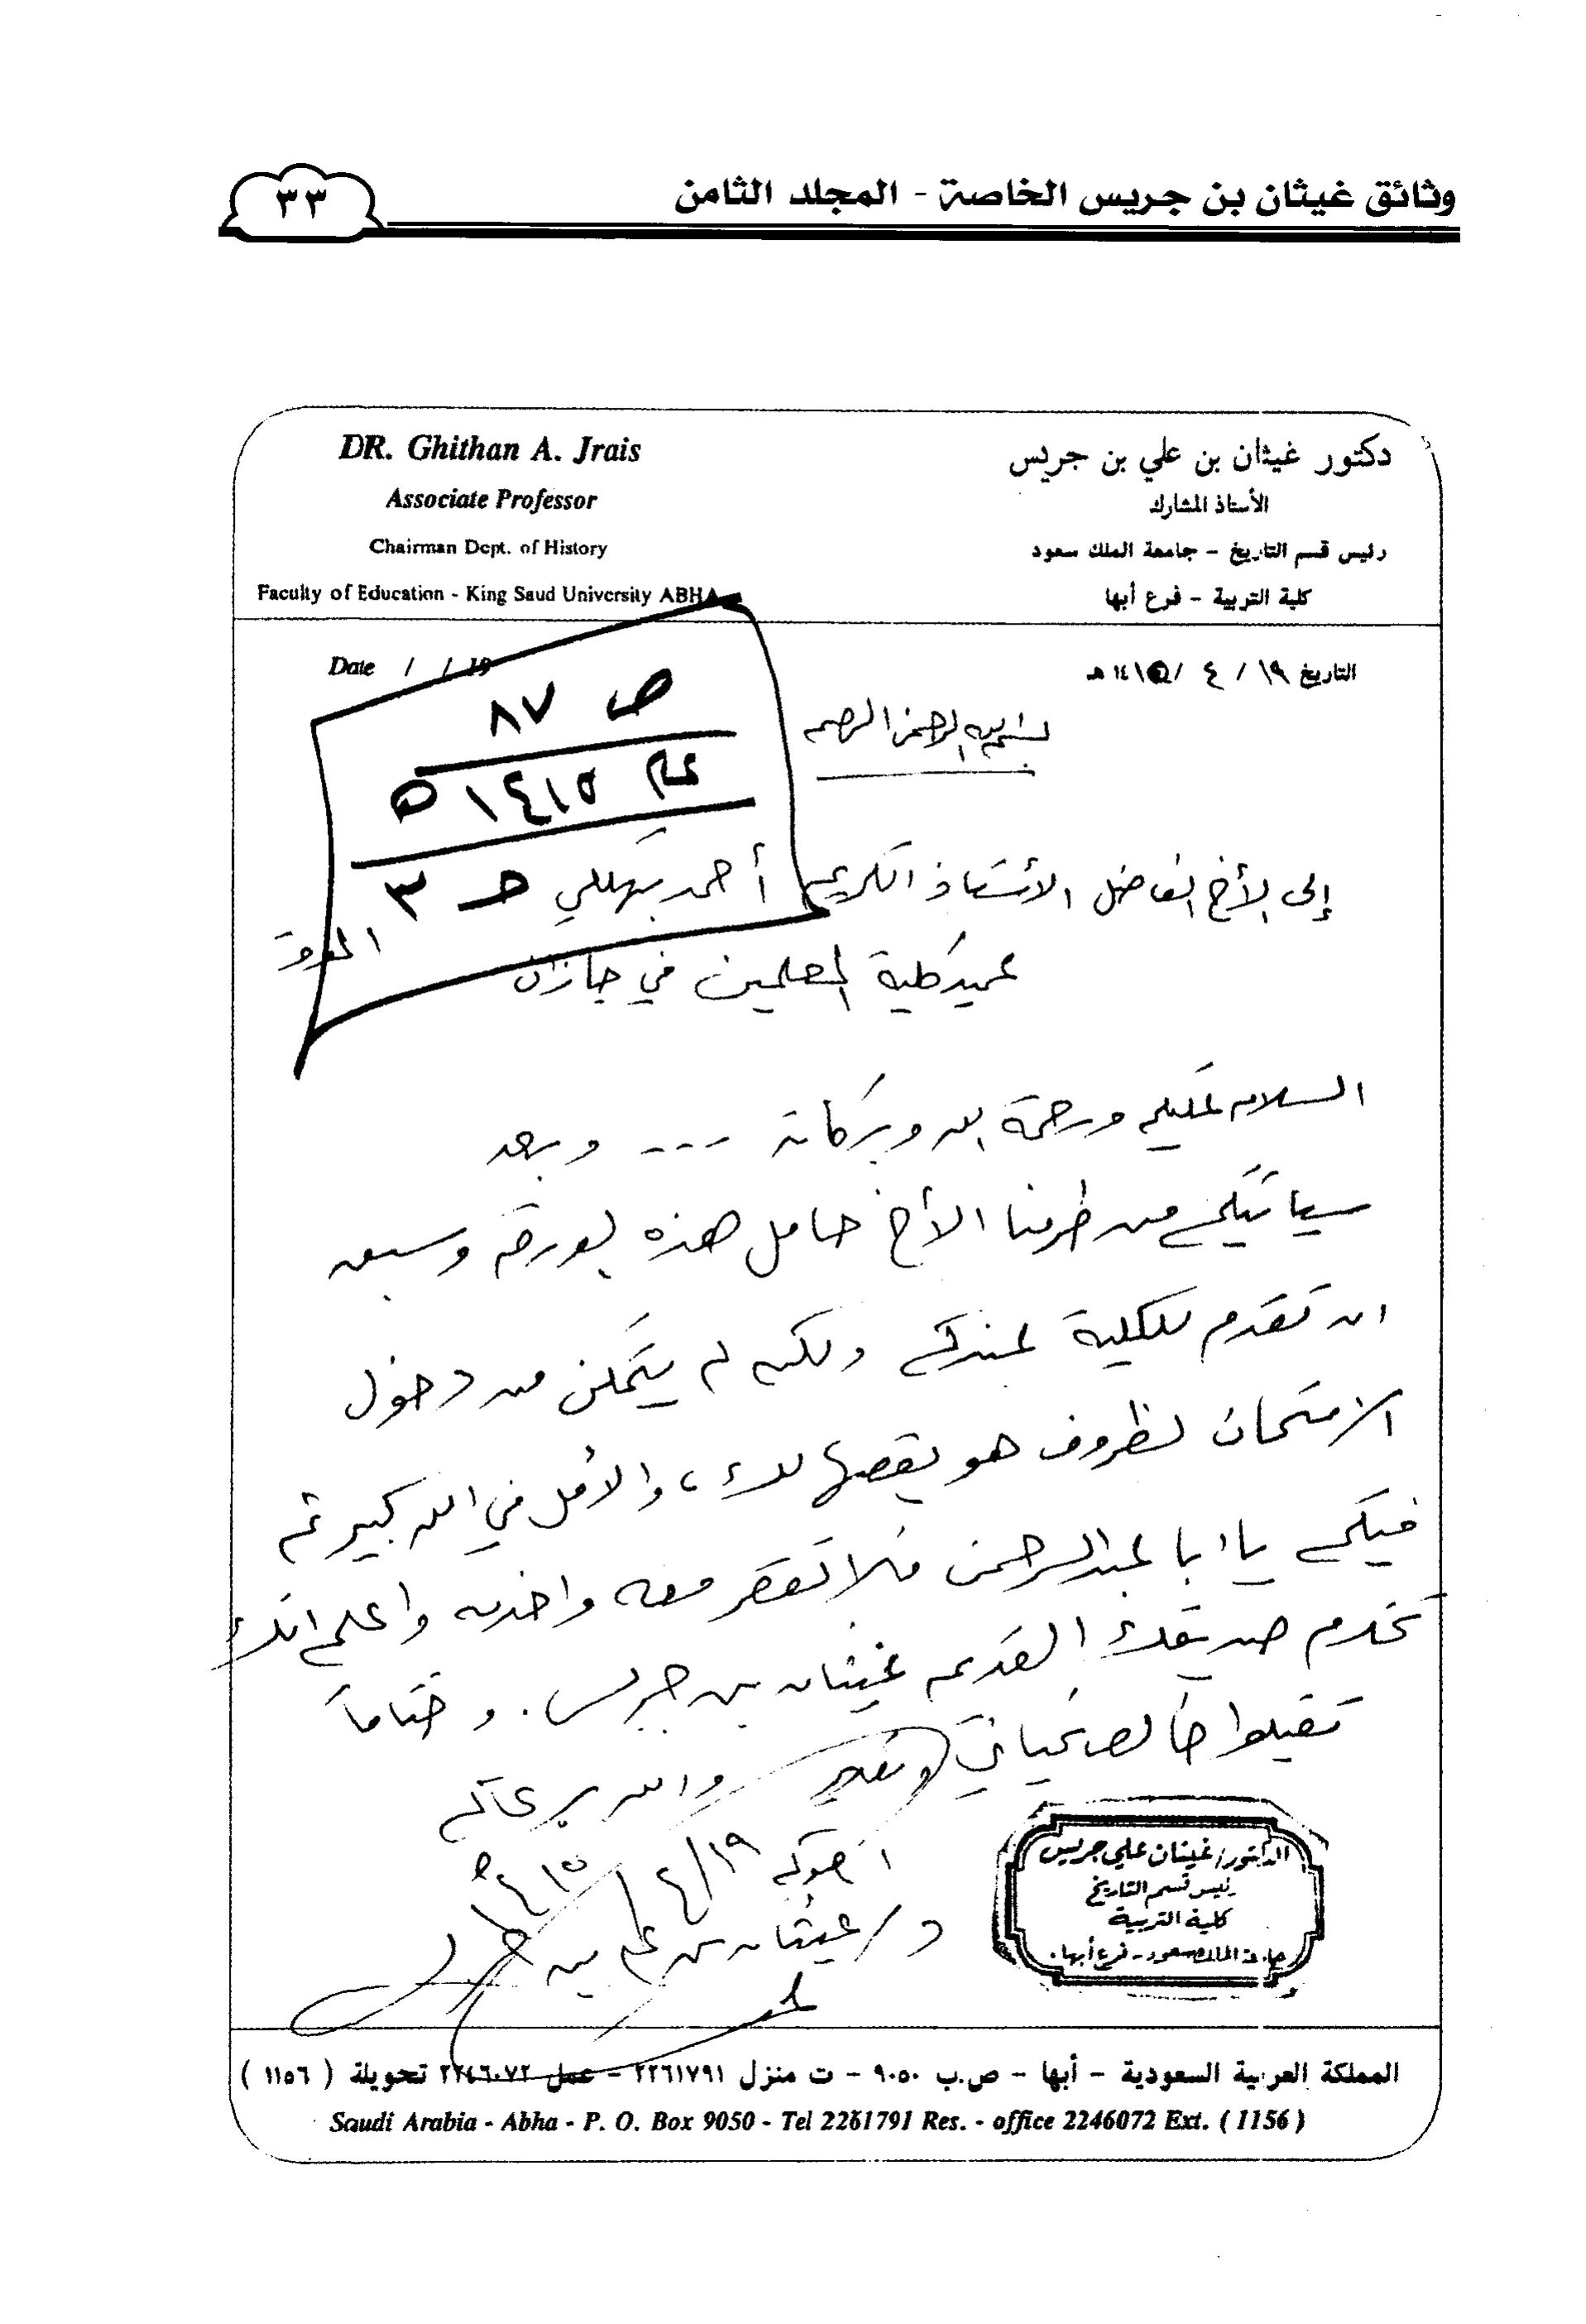 وثائق غيثان بن جريس الخاصة - المجلد الثامن
٣٣
DR. Ghithan A. Jrais
Associate Professor
Chairman Dept. of History
Faculty of Education - King Saud University ABHA
دكتور غيثان بن علي بن جريس
الأستاذ المشارك
رئيس قسم التاريخ - جامعة الملك سعود
كلية التربية - فرع أبها
Date / / 19
التاريخ ١٩ / ٤ / ١٤١٥ هـ
ص ٨٧
عام ١٤١٥ هـ
حـ ٣
بسم الله الرحمن الرحيم
إلى الأخ الفاضل الأستاذ الكريم أحمد بهكلي
الموقر
عميد كلية المعلمين في جازان
السلام عليكم ورحمة الله وبركاته --- وبعد
سيأتيكم من طرفنا الأخ حامل هذه الورقه وسبق
ان تقدم للكلية عندكم ولكنه لم يتمكن من دخول
الامتحان لظروف هو يقصها لك، والأمل في الله كبير ثم
فيكم يا ابا عبدالرحمن فلا تقصر معه واخدمه واعلم انك
تخدم صديقك القديم غيثان بن جريس. وختاماً
تقبلوا خالص تحياتي وتقديري والله يرعاكم
اخوكم ١٩/٤/١٤١٥هـ
د/ غيثان بن علي بن جريس
الدكتور/ غيثان علي جريس
رئيس قسم التاريخ
كلية التربية
جامعة الملك سعود - فرع أبها
المملكة العربية السعودية - أبها - ص.ب ٩٠٥٠ - ت منزل ٢٢٦١٧٩١ - عمل ٢٢٤٦٠٧٢ تحويلة ( ١١٥٦ )
Saudi Arabia - Abha - P. O. Box 9050 - Tel 2261791 Res. - office 2246072 Ext. ( 1156 )